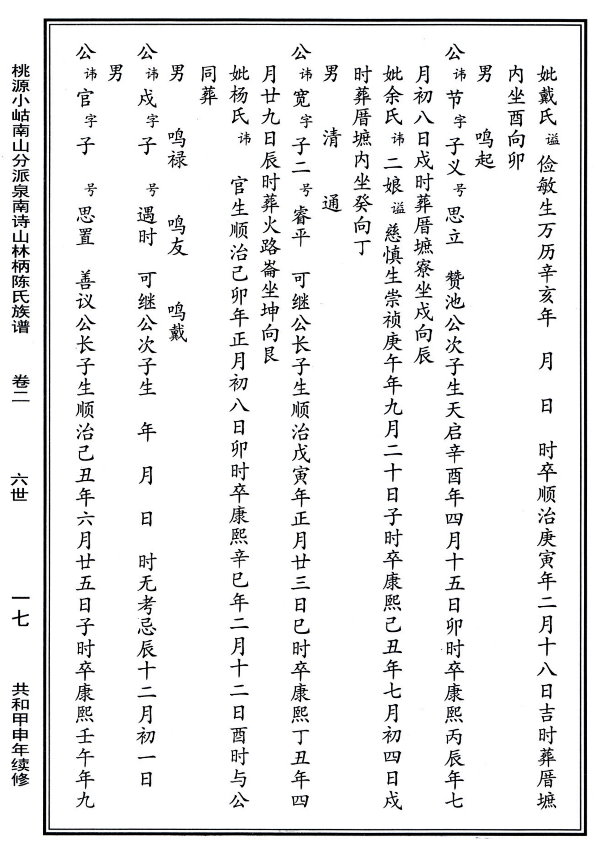 妣戴氏 谥 俭敏生万历辛亥年 月 日 时卒顺治庚寅年二月十八日吉时葬厝墌
内坐酉向卯
男 鸣起
公 讳 节 字 子义 号 思立 赞池公次子生天启辛酉年四月十五日卯时卒康熙丙辰年七
月初八日戌时葬厝墌寮坐戌向辰
妣余氏 讳 二娘 谥 慈慎生崇祯庚午年九月二十日子时卒康熙己丑年七月初四日戌
时葬厝墌内坐癸向丁
男 清 通
公 讳 宽 字 子二 号 睿平 可继公长子生顺治戊寅年正月廿三日巳时卒康熙丁丑年四
月廿九日辰时葬火路崙坐坤向艮
妣杨氏 讳 官生顺治己卯年正月初八日卯时卒康熙辛巳年二月十二日酉时与公
同葬
男 鸣禄 鸣友 鸣戴
公 讳 戍 字 子 号 遇时 可继公次子生 年 月 日 时无考忌辰十二月初一日
男
公 讳 官 字 子 号 思置 善议公长子生顺治己丑年六月廿五日子时卒康熙壬午年九
桃源小岵南山分派泉南诗山林柄陈氏族谱 卷二 六世 一七 共和甲申年续修